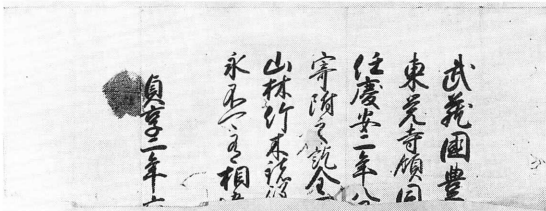 武蔵國豊
東光寺領同
任慶安二年
寄附之訖全
山林竹木諸役
永不可有相違
貞享二年六